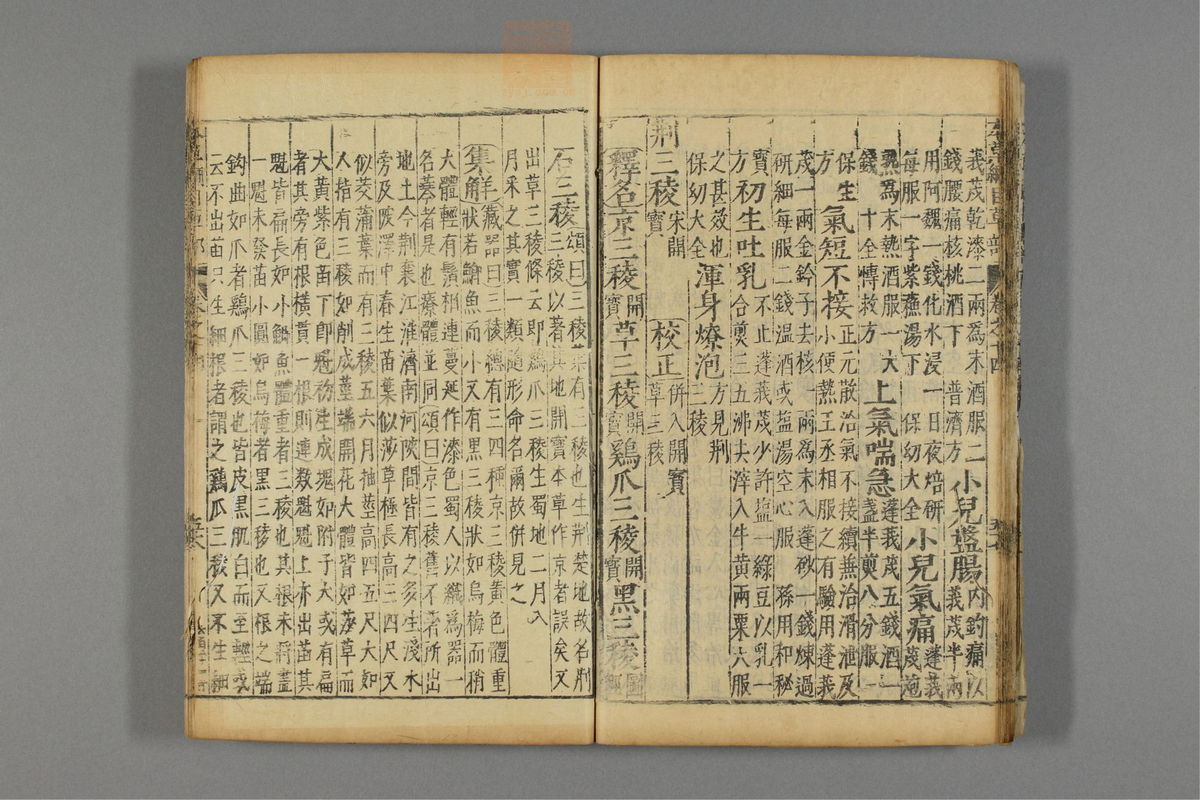 莪茂乾漆二兩爲末酒服二
錢腰痛核桃酒下 普濟方 小兒盤腸 內釣痛以莪茂半兩
用阿魏一錢化水浸一日夜焙研
每服一字紫蘓湯下 保幼大全 小兒氣痛 蓬莪茂炮
熟爲末熱酒服一大
錢 十全愽救方 上氣喘急 蓬莪茂五錢酒一盞半煎八分服
保生方 氣短不接 正元散治氣不接續兼治滑泄及小便蒸王丞相服之有驗用蓬莪
茂一兩金鈴子去核一兩爲末入蓬砂一錢煉過
研細每服二錢温酒或塩湯空心服 孫用和秘
寶方 初生吐乳 不止蓬莪茂少許塩一綠豆以乳一合煎三五沸去滓入牛黄兩粟大服
之甚效也
保幼大全 渾身燎泡 方見荆三稜
荆三稜 宋開寶 校正 併入開寶草三稜
釋名 京三稜 開寶 草三稜 開寶 鷄爪三稜 開寶 黑三稜 圖經
石三稜 頌曰三稜葉有三稜也生荆楚地故名荆
三稜以著其地開寶本草作京者誤矣又
出草三稜條云即鷄爪三稜生蜀地二月八
月采之其實一類隨形命名爾故併見之
集解 藏器曰三稜總有三四種京三稜黄色體重
狀若鯽魚而小又有黑三稜狀如烏梅而稍
大體輕有鬚相連蔓延作漆色蜀人以織爲器一
名䓴者是也療體並同頌曰京三稜舊不著所出
地土今荆襄江淮濟南河陝間皆有之多生淺水
旁及陂澤中春生苗葉似莎草極長高三四尺又
似茭蒲葉而有三稜五六月抽莖高四五尺大如
人指有三稜如削成莖端開花大體皆如莎草而
大黄紫色苗下即魁初生成塊如附子大或有扁
者其旁有根橫貫一根則連數魁魁上亦出苗其
魁皆扁長如小鯽魚體重者三稜也其根末將盡
一魁未發苗小圓如烏梅者黑三稜也又根之端
鈎曲如爪者鷄爪三稜也皆皮黑肌白而至輕或
云不出苗只生細根者謂之鷄爪三稜又不生細